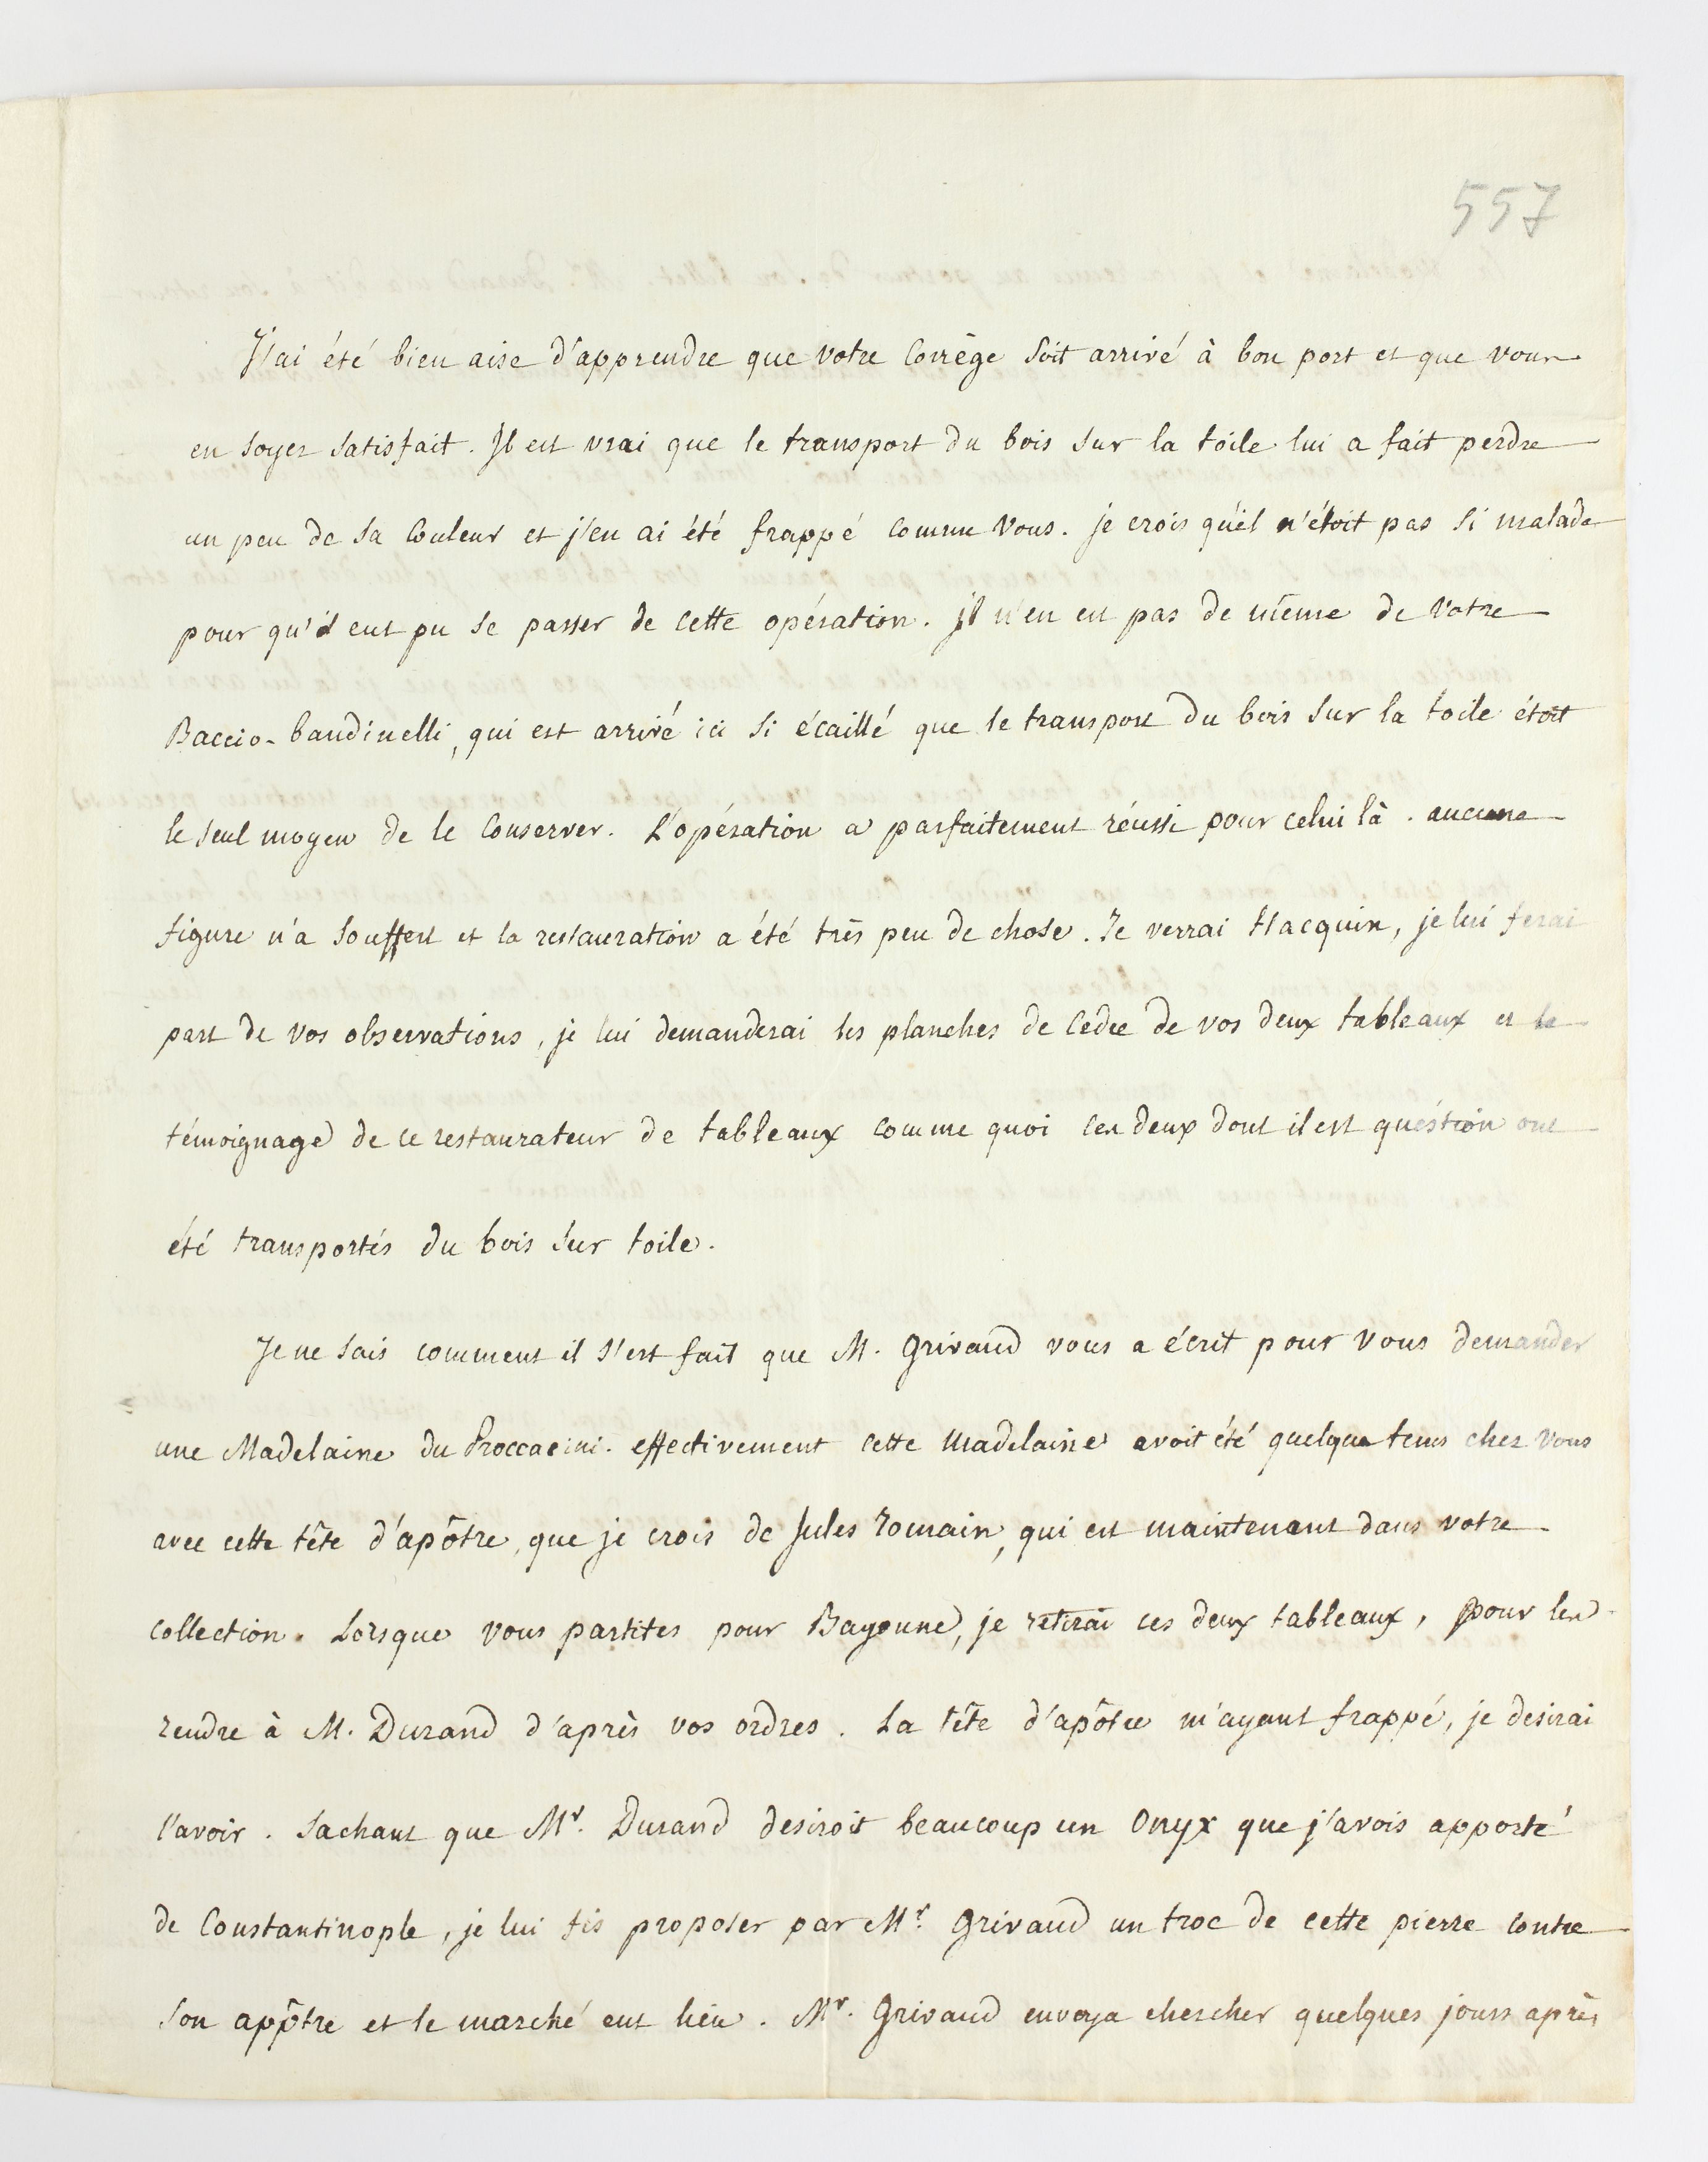 557
J'ai été bien aise d'apprendre que votre Corrège soit arrivé à bon port et que vous
en soyez satisfait. Il est vrai que le transport du bois sur la toile lui a fait perdre
un peu de sa couleur et j'en ai été frappé comme vous. je crois qu'il n'étoit pas si malade
pour qu'il eut pu se passer de cette opération. Il n'en est pas de même de votre
Baccio-bandinelli, qui est arrivé ici si écaillé que le transport du bois sur la toile étoit
le seul moyen de le conserver. L'opération a parfaitement réussi pour celui là. aucune
figure n'a souffert et la restauration a été très peu de chose. Je verrai Hacquin, je lui ferai
part de vos observations, je lui demanderai les planches de cèdre de vos deux tableaux et le
témoignage de ce restaurateur de tableaux comme quoi ces deux dont il est question ont
été transportés du bois sur toile.
Je ne sais comment il s'est fait que M. Grivaud vous a écrit pour vous demander
une Madelaine du Proccacini. effectivement cette Madelaine avoit été quelque tems chez vous
avec cette tête d'apôtre, que je crois de Jules romain, qui est maintenant dans votre
collection. Lorsque vous partites pour Bayonne, je retirai ces deux tableaux, pour les
rendre à M. Durand d'après vos ordres. La tête d'apôtre m'ayant frappé, je desirai
l'avoir. Sachant que Mr. Durand desiroit beaucoup un Onyx que j'avois apporté
de Constantinople, je lui fis proposer par Mr. Grivaud un troc de cette pierre contre
son appôtre et le marché eut lieu. Mr. Grivaud envoya chercher quelques jours après